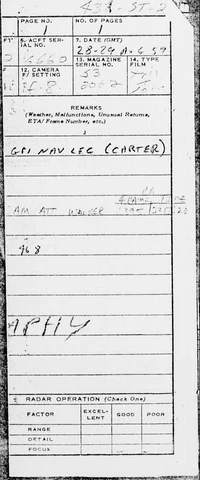 431-ST-2
PAGE NO. NO. OF PAGES
1 1
6. ACFT SER-
IAL NO. 7. DATE (GMT)
6660 28-29 AUG 59
12. CAMERA
F/SETTING 13. MAGAZINE
SERIAL NO. 14. TYPE
FILM
F-8 53
REMARKS
(Weather, Malfunctions, Unusual Returns,
ETA/Frame Number, etc.)
GPI NAV LEG (CARTER)
AM ATT
468
APHY
RADAR OPERATION (Check One)
FACTOR EXCEL-
LENT GOOD POOR
RANGE
DETAIL
FOCUS